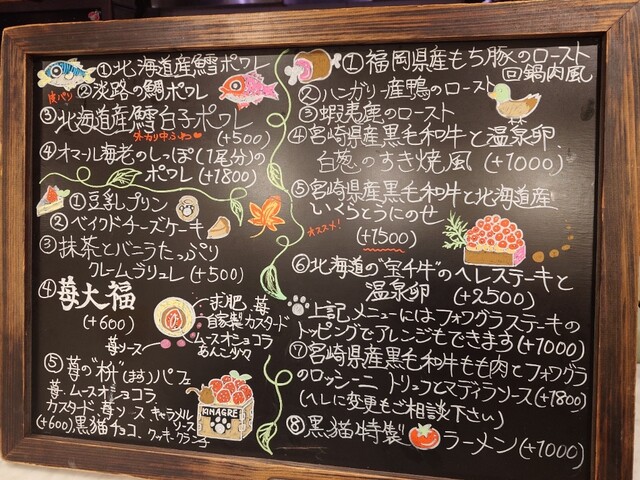 ①北海道産鱈ポワレ
②淡路の鯛ポワレ
皮パリ
③北海道産鱈白子ポワレ
外カリ中ふわ♥
(+500)
④オマール海老のしっぽ(1尾分)の
ポワレ(+1800)
①豆乳プリン
②ベイクドチーズケーキ
③抹茶とバニラたっぷり
クレームブリュレ(+500)
④苺大福
(+600)
求肥、苺
自家製カスタード
ムースオショコラ
あんこ少々
苺ソース
⑤苺の"枡"(ます)パフェ
苺、ムースオショコラ
カスタード、苺ソース キャラメルソース
(+600)黒猫チョコ、クッキークランチ
KINAGRE
①福岡県産もち豚のロースト
回鍋肉風
②ハンガリー産鴨のロースト
③蝦夷鹿のロースト
④宮崎県産黒毛和牛と温泉卵
白葱のすき焼風(+1000)
⑤宮崎県産黒毛和牛と北海道産
いくらとうにのせ
オススメ!
(+1500)
⑥北海道の"宝千牛"のヘレステーキと
温泉卵(+2500)
上記メニューにはフォワグラステーキの
トッピングでアレンジもできます(+1000)
⑦宮崎県産黒毛和牛もも肉とフォワグラ
のロッシーニ トリュフとマディラソース(+1800)
(ヘレに変更もご相談下さい)
⑧黒猫特製 ラーメン(+1000)